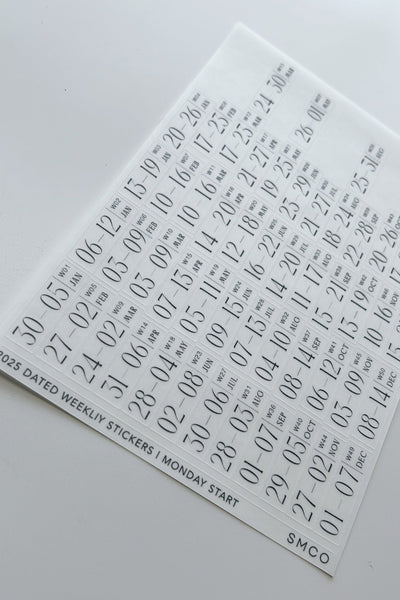 W01 30–05 JAN W02 06–12 JAN W03 13–19 JAN W04 20–26 JAN
W05 27–02 FEB W06 03–09 FEB W07 10–16 FEB W08 17–23 FEB
W09 24–02 MAR W10 03–09 MAR W11 10–16 MAR W12 17–23 MAR W13 24–30 MAR
W14 31–06 APR W15 07–13 APR W16 14–20 APR W17 21–27 APR
W18 28–04 MAY W19 05–11 MAY W20 12–18 MAY W21 19–25 MAY W22 26–01 MAY
W23 02–08 JUN W24 09–15 JUN W25 16–22 JUN W26 23–29 JUN
W27 30–06 JUL W28 07–13 JUL W29 14–20 JUL W30 21–27 JUL
W31 28–03 AUG W32 04–10 AUG W33 11–17 AUG W34 18–24 AUG W35 25–31 AUG
W36 01–07 SEP W37 08–14 SEP W38 15–21 SEP W39 22–28 SEP
W40 29–05 OCT W41 06–12 OCT W42 13–19 OCT W43 20–26 OCT
W44 27–02 NOV W45 03–09 NOV W46 10–16 NOV
W49 01–07 DEC W50 08–14 DEC
2025 DATED WEEKLIY STICKERS | MONDAY START
SMCO